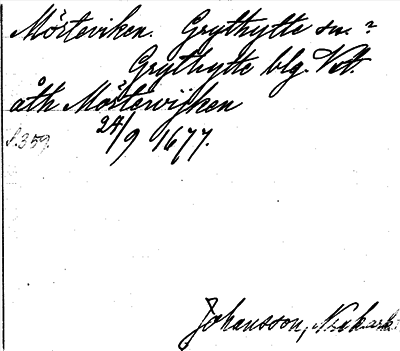 Mörteviken. Grythytte sn. ?
Grythytte blg. Vstl.
åth Mörtewijken
s. 359. 24/9 1677.
Johansson, Nrakark.